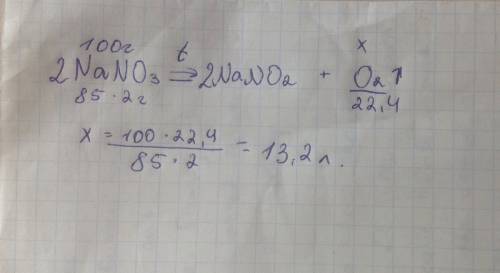 100г x
2NaNO₃ =t⇒ 2NaNO₂ + O₂↑
85·2г 22,4
x = 100·22,4 / 85·2 = 13,2л.